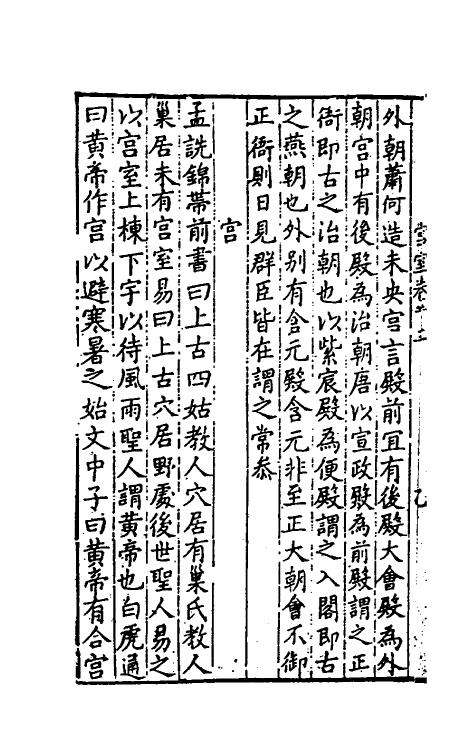 外朝蕭何造未央宮言殿前宜有後殿大會殿為外
朝宮中有後殿為治朝唐以宣政殿為前殿謂之正
衙即古之治朝也以紫宸殿為便殿謂之入閣即古
之燕朝也外别有含元殿含元非至正大朝會不御
正衙則日見群臣皆在謂之常叅
宮
孟詵錦帶前書曰上古四姑教人穴居有巢氏教人
巢居未有宮室易曰上古穴居野處後世聖人易之
以宮室上棟下宇以待風雨聖人謂黄帝也白虎通
曰黄帝作宮以避寒暑之始文中子曰黄帝有合宮